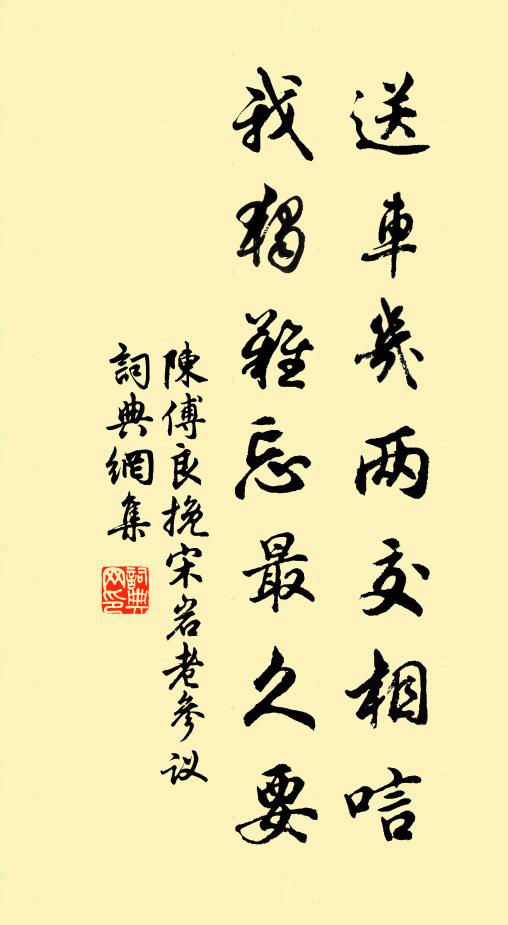 送車幾两交相唁
我獨難忘最久要
陳傅良挽宋岩老參议
詞典網集
詞典网印